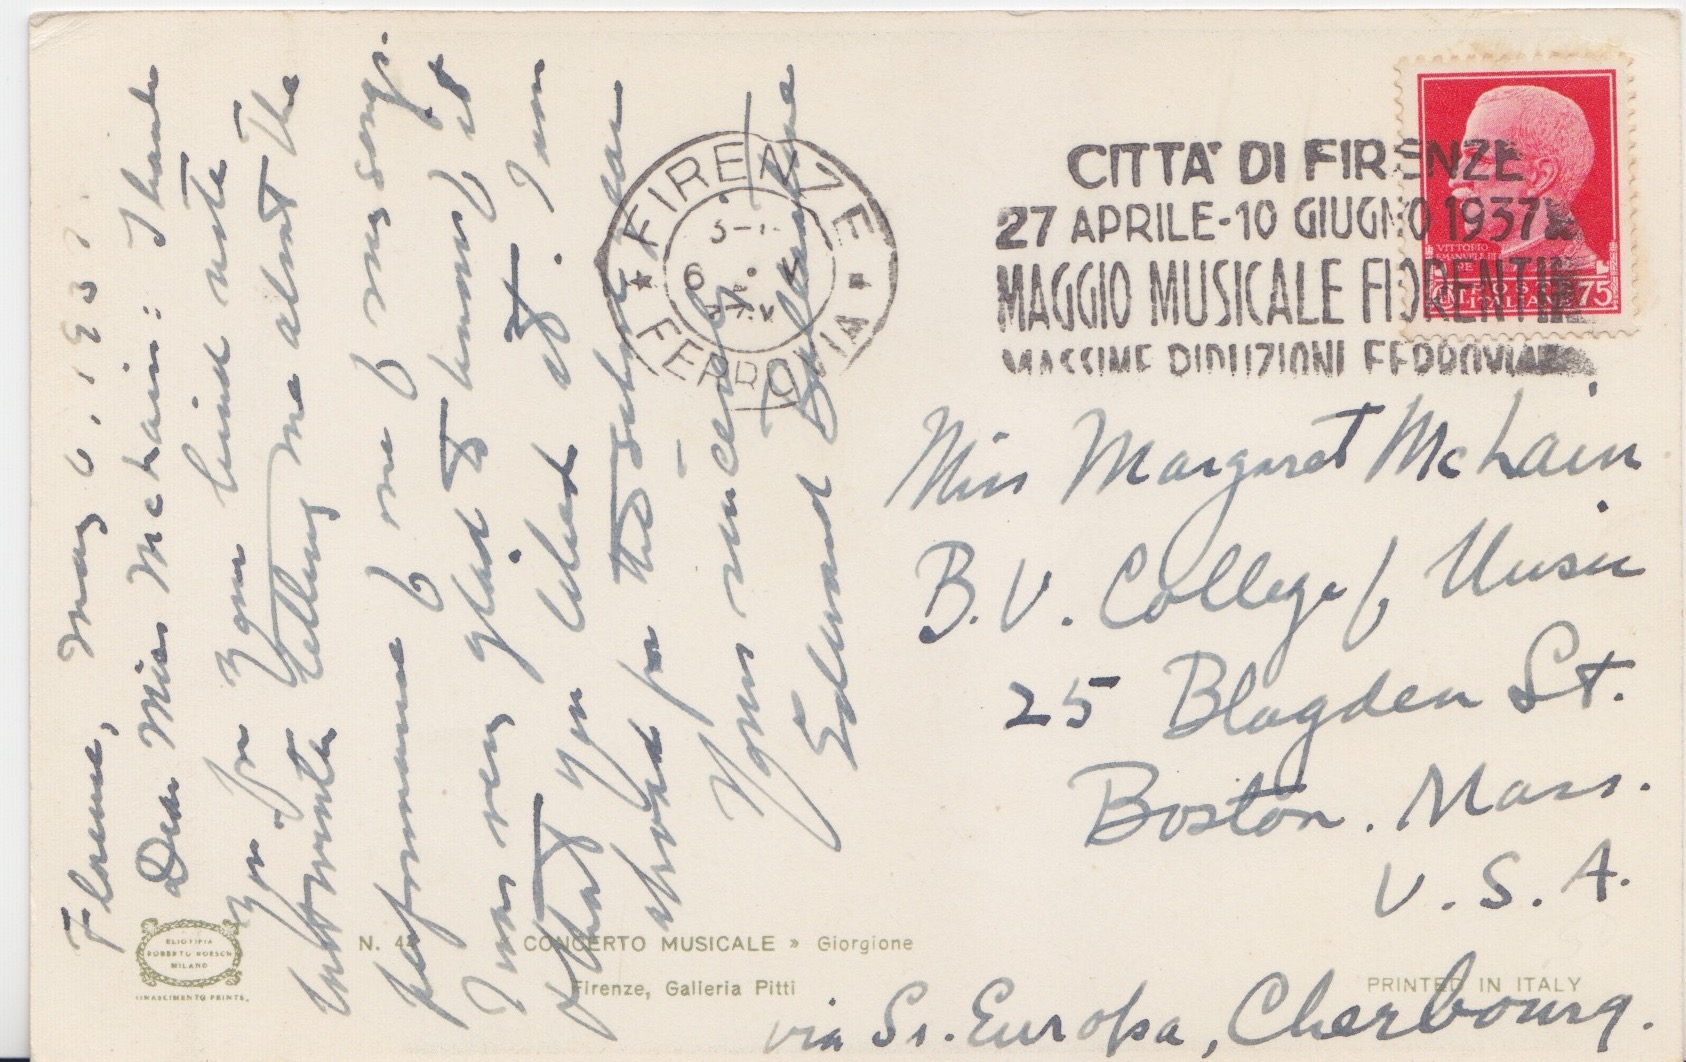 Florence, May 6, 193
Dear Miss McLain: Thank
you for your kind note
letting me about the
performance of one of my songs.
I was very glad to know of it
& that you liked it. I am
the
Yours sincerely
Edward Ballantine
FIRENZE
FERROVIA
6
CITTA' DI FIRENZE
27 APRILE-10 GIUGNO 1937
MAGGIO MUSICALE FIORENTIN
MASSIME RIDUZIONI FERROVIA
VITTORIO
EMANUELE III
POSTE
ITALIANE
75
Miss Margaret McLain
B.U. College of Music
25 Blagden St.
Boston. Mass.
U.S.A.
via Ss. Europa, Cherbourg.
ELIOTIPIA
ROBERTO HOESCH
MILANO
RINASCIMENTO PRINTS.
N. 4
CONCERTO MUSICALE » Giorgione
Firenze, Galleria Pitti
PRINTED IN ITALY